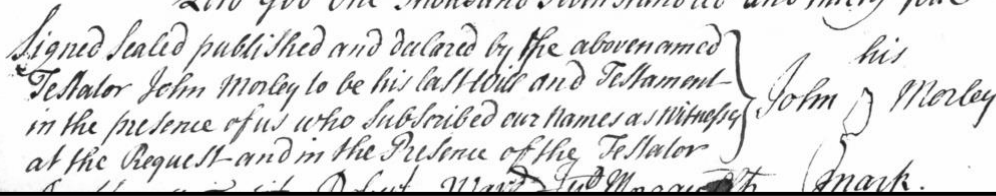 Lord God One Thousand Seven Hundred and ninety four
Signed Sealed published and declared by the abovenamed
Testator John Morley to be his last Will and Testament
in the presence of us who Subscribed our Names as Witnesses
at the Request and in the Presence of the Testator
his
John Morley
mark.